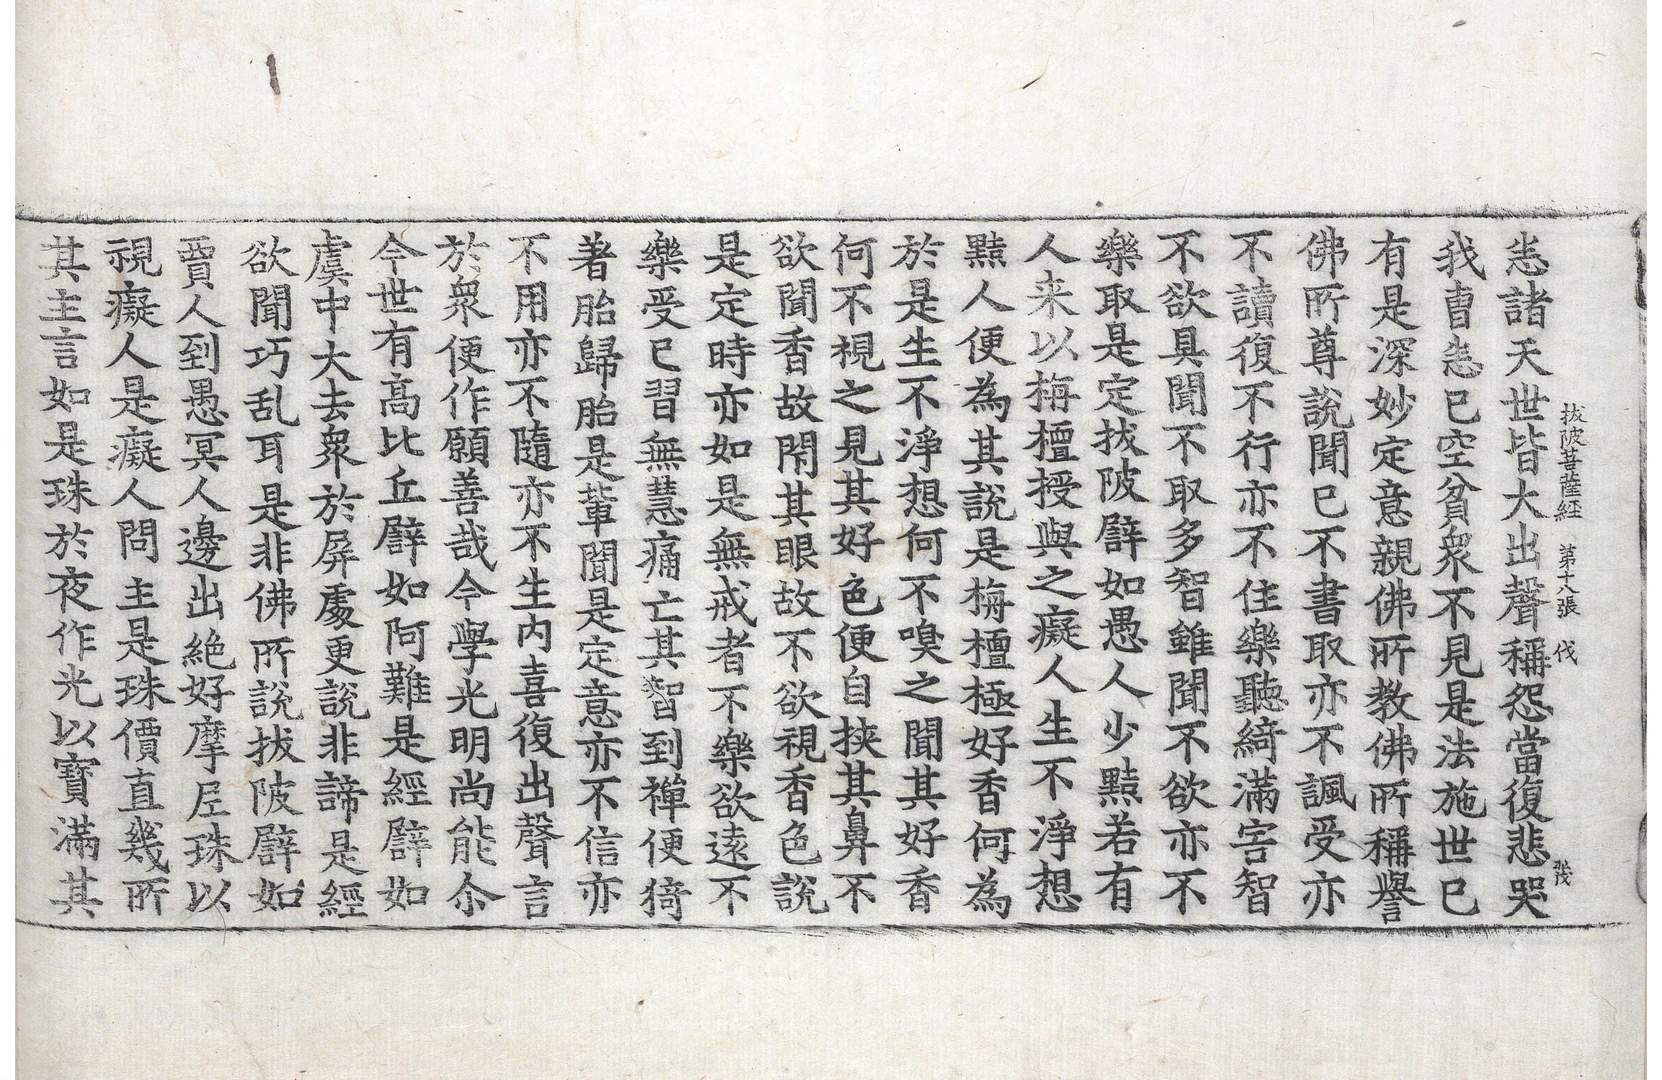 拔陂菩薩經 第十八張 伐
恙諸天世皆大出聲稱怨當復悲哭
我曺恙已空貧衆不見是法施世已
有是深妙定意親佛所教佛所稱譽
佛所尊說聞已不書取亦不諷受亦
不讀復不行亦不住樂聽綺滿害智
不欲具聞不取多智雖聞不欲亦不
樂取是定拔陂譬如愚人少黠若有
人来以栴檀授與之癡人生不淨想
黠人便為其說是栴檀極好香何為
於是生不淨想何不嗅之聞其好香
何不視之見其好色便自挾其鼻不
欲聞香故閇其眼故不欲視香色說
是定時亦如是無戒者不樂欲遠不
樂受已習無慧痛亡其智到禪便猗
著胎歸胎是輩聞是定意亦不信亦
不用亦不隨亦不生內喜復出聲言
於衆便作願善哉今學光明尚能尒
今世有高比丘譬如阿難是經譬如
虞中大去衆於屛處更說非諦是經
欲聞巧乱耳是非佛所說拔陂譬如
賈人到愚冥人邊出絶好摩尼珠以
視癡人是癡人問主是珠價直幾所
其主言如是珠於夜作光以寶滿其